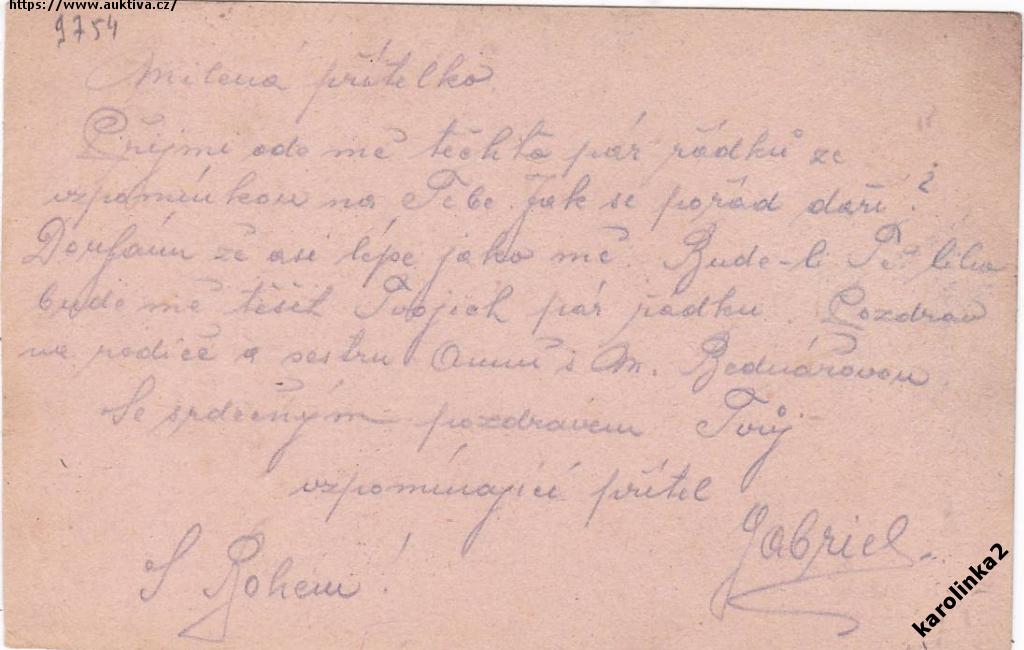 https://www.auktiva.cz/
9754
Milená přítelko.
Přijmi ode mě těchto pár řádků ze
vzpomínkou na Tebe. Jak se pořád daří?
Doufám že asi lépe jako mě. Bude-li Tě libo
bude mě těšit Tvojich pár řádku. Pozdrav
na rodiče a sestru Annu i M. Bednářovou.
Se srdečným pozdravem Tvůj
vzpomínající přítel
Gabriel.
S Bohem!
karolinka2